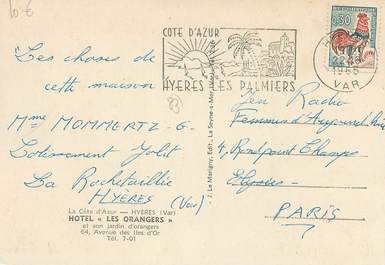 10 €
CÔTE D'AZUR
HYERES LES PALMIERS
0,30
22-8
1965
VAR
83
"Les choses de
cette maison
Mme MOMMERTZ-G
Lotissement
La Rochetaillée
HYÈRES (Var)
Jeu Radio
Femmes d'Aujourd'hui
4, Rond point Champs
Elysées
PARIS
La Côte d'Azur — HYERES (Var)
HOTEL « LES ORANGERS »
et son jardin d'orangers
64, Avenue des Iles d'Or
Tél. 7-01
J. Le Marigny, Edit., La Seyne-s-Mer (Var)